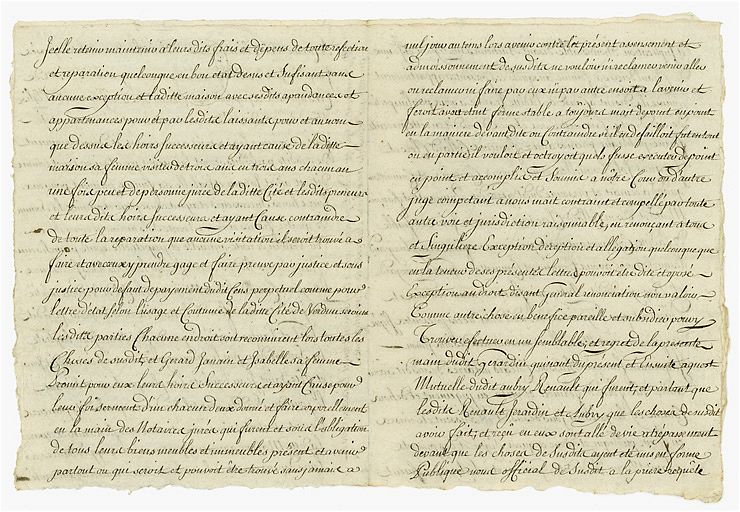 Icelle retenir maintenir a leurs dits frais et dépens de toute refection
et reparation quelconque en bon etat deus et Sufisant sans
aucune exception et laditte maison avec sesdits apandances et
appartenances pour et par lesdits laissants pour et au nom
que dessus les hoirs successeurs et ayant cause de laditte
maison sa femme visitée de trois ans en trois ans chacun an
une fois peu et de personne juré de laditte Cité et lesdits preneurs
et leurs dits hoirs successeurs et ayant Cause contraindre
de toute la reparation que aucune visitation il seroit trouvé a
faire et avec eux y prendre gage et faire preuve par justice et sous
justice pour defaut de payement dudit Cens perpetuel comme pour
lettre d'état selon l'usage et Coutume de laditte Cité de Verdun
lesditts parties Chacune endroit soit reconnurent lors toutes les
Choses de susdit, et Gerard Janain et Isabelle sa femme
Promit pour eux leurs hoirs Successeurs et ayant Cause pour
leurs foi serment d'un chacun deux donné et faire corporellement
en la main des Notaires jurés qui furent et sous l'obligation
de tous leurs biens meubles et immeubles présent et avenir
partout ou qui seroit et pouvoit être trouvé sans jamais a
nul jour au tems lors avenir contre le présent assensement et
admoissonnement de susdits ne vouloir ni reclamer venir aller
ou reclamer ni faire par eux ni par autre en soit a l'avenir et
feroit avoir tenir ferme stable a toujours mait de point en point
en la maniere devanditte ou Contraindre s'il ni defailloit fut en tout
ou en partie il vouloit et octroyot quelo fusse executée de point
en point et accomplie et Soumis a nôtre Cour ou d'autre
juge competant à nous mait contraint et compellé par toute
autre voie et jurisdiction raisonnable, en renonçant à tous
et Singuliere Exception deception et allegation quelconque que
en la teneur de ses présentes lettres pouvoit être dite et oposé
Exception au droit disant General renonciation non valoir,
Comme autre chose en benefice pareille et
Trouver efectuer en un semblable, et regret de la presente
main dudit Gérardin qui n'ant du présent et Ensuite
Mutuelle dudit Aubry Renault qui furent, et parlant que
lesdits Renault Jerardin et Aubry que les choses de susdit
avoir fait, et reçu en eux sont allé de vie a trépassement
devant que les choses de Susdits ayent été mis en forme
Publique nous official de Susdit a la priere requête